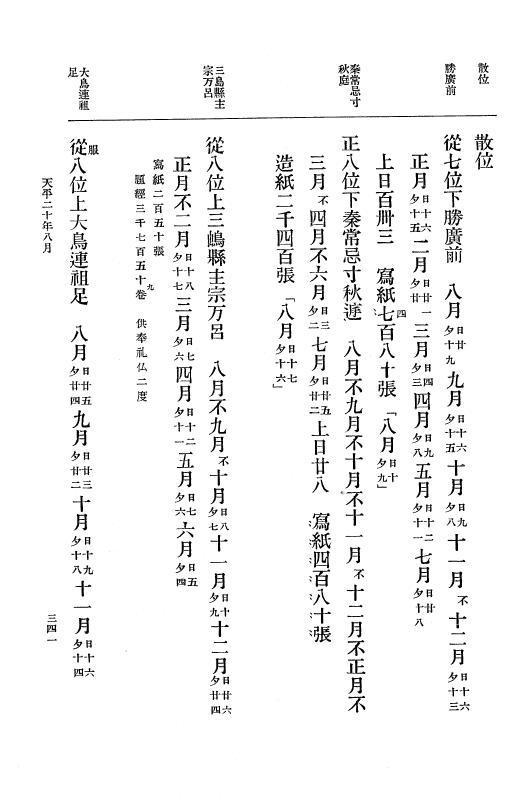 散位
勝廣前
秦常忌寸
秋庭
三島縣主
宗万呂
大鳥連祖
足
散位
從七位下勝廣前　八月日廿夕十九九月日十六夕十五十月日九夕八十一月不十二月日十六夕十三
正月日十六夕十五二月日廿一夕廿三月日四夕三四月日九夕八五月日十二夕十一七月日廿夕十八
上日百卌三　寫紙七四百八十張「八月日十夕九」
正八位下秦常忌寸秋遲　八月不九月不十月不十一月不十二月不正月不
三月不四月不六月日三夕二七月日廿五夕廿二上日廿八　寫紙四百八十張
造紙二千四百張「八月日十七夕十六」
從八位上三嶋縣主宗万呂　八月不九月不十月日八夕七十一月日十夕九十二月日廿六夕廿四
正月不二月日十八夕十七三月日七夕六四月日十二夕十一五月日七夕六六月日五夕四
寫紙二百五十張
題經三千七百五十九卷　供奉礼仏二度
從服八位上大鳥連祖足　八月日廿五夕廿四九月日廿三夕廿二十月日十九夕十八十一月日十六夕十四
天平二十年八月
三四一